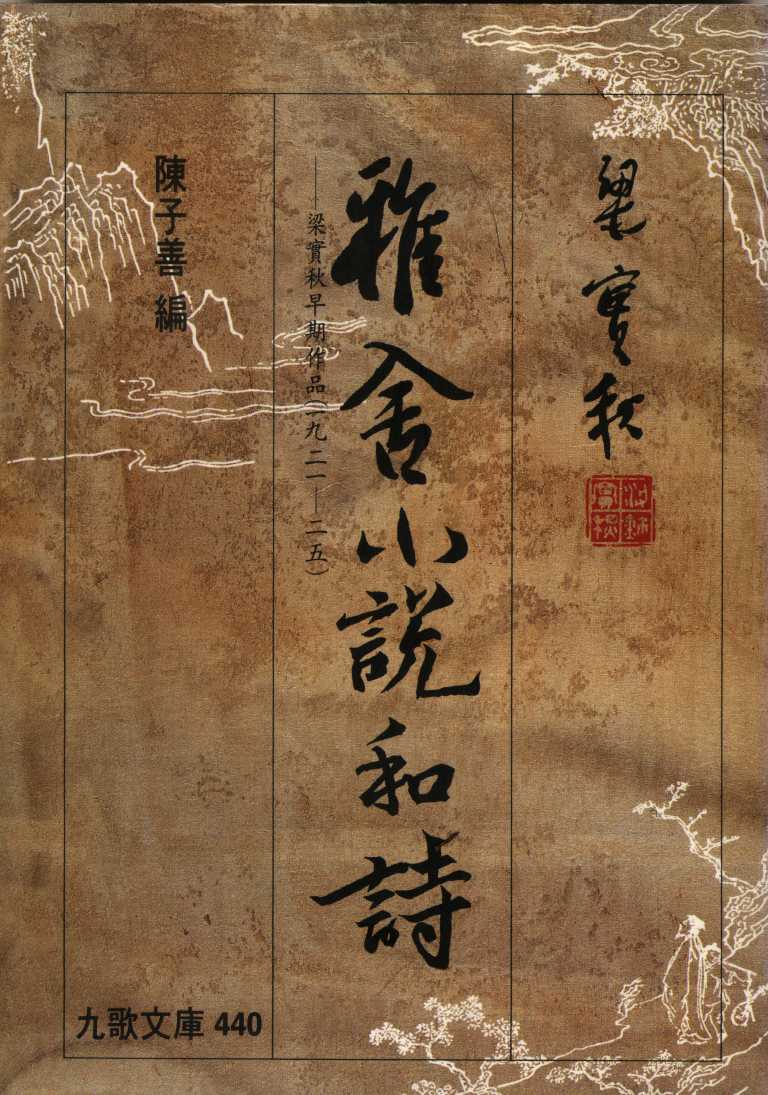 梁實秋
雅舍小說和詩
——梁實秋早期作品(一九二一—二五)
陳子善 編
九歌文庫 440